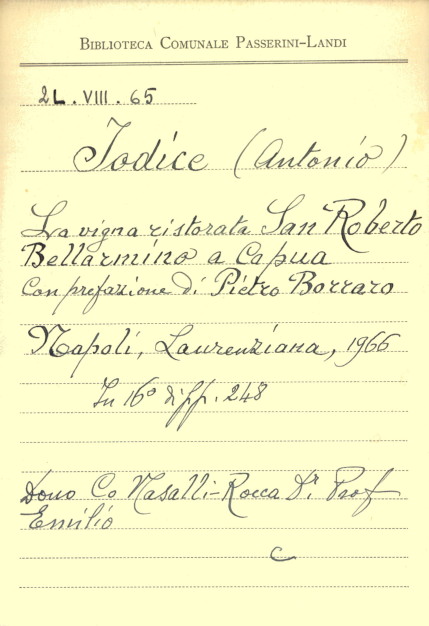 BIBLIOTECA COMUNALE PASSERINI-LANDI
2L. VIII. 65
Iodice (Antonio)
La vigna ristorata San Roberto
Bellarmino a Capua
Con prefazione di Pietro Borraro
Napoli, Laurenziana, 1966
In 16° di pp. 248
Dono Co Nasalli-Rocca Dr. Prof
Emilio
C